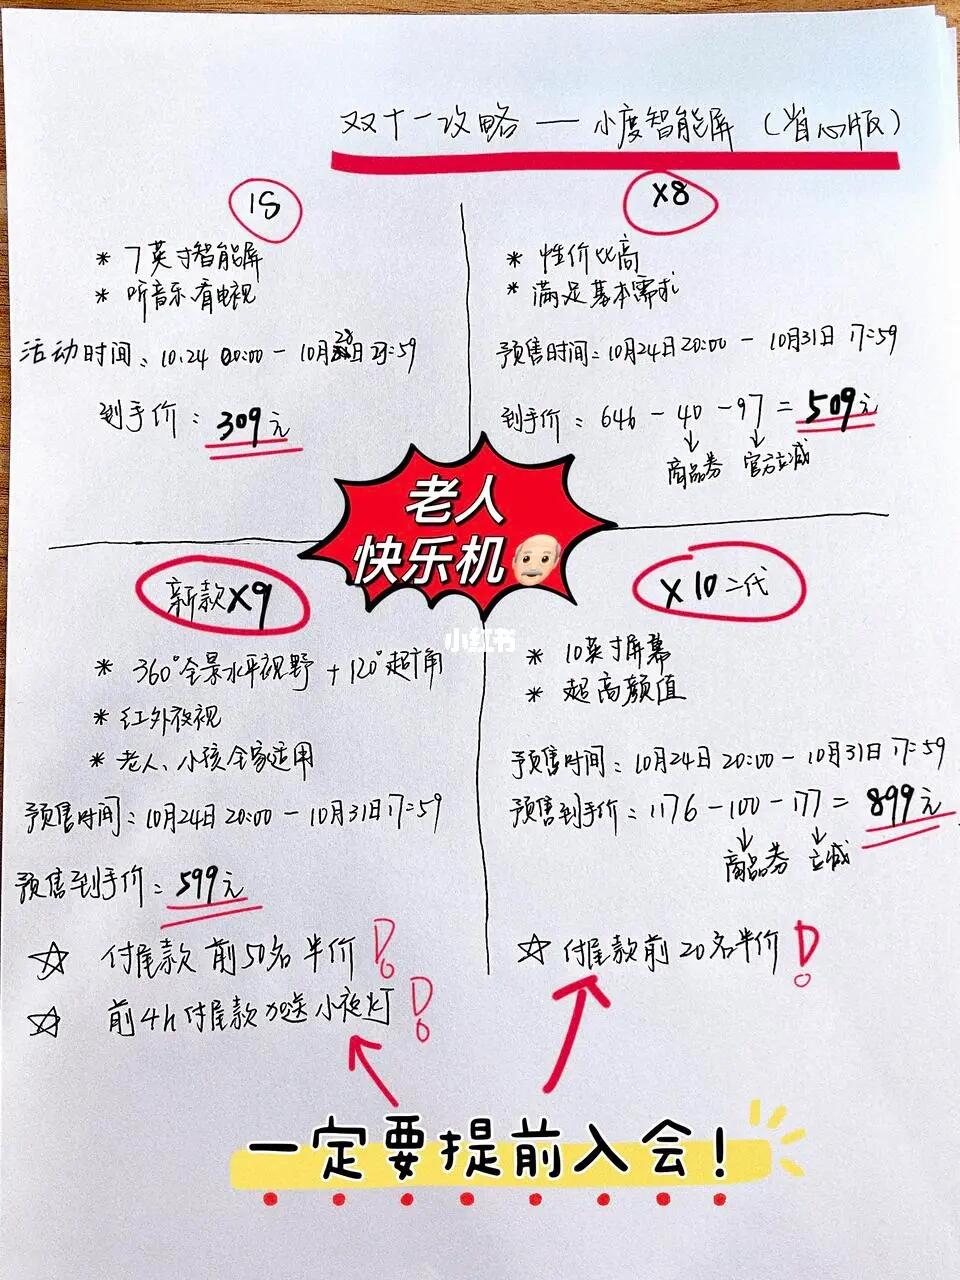 双十一攻略 — 小度智能屏（省心版）
1S
* 7英寸智能屏
* 听音乐.看电视
活动时间：10.24 00:00 - 10月28日23:59
到手价：309元
X8
* 性价比高
* 满足基本需求
预售时间：10月24日20:00 - 10月31日 17:59
到手价：646 - 40 - 97 = 509元
商品券 官方立减
老人
快乐机
小红书
新款X9
* 360°全景水平视野 + 120°超广角
* 红外夜视
* 老人、小孩全家适用
预售时间：10月24日20:00 - 10月31日17:59
预售到手价：599元
☆ 付尾款前50名半价!
☆ 前4h付尾款加送小夜灯!
X10二代
* 10英寸屏幕
* 超高颜值
预售时间：10月24日 20:00 - 10月31日 17:59
预售到手价：1176 - 100 - 177 = 899元
商品券 立减
☆ 付尾款前20名半价!
一定要提前入会!